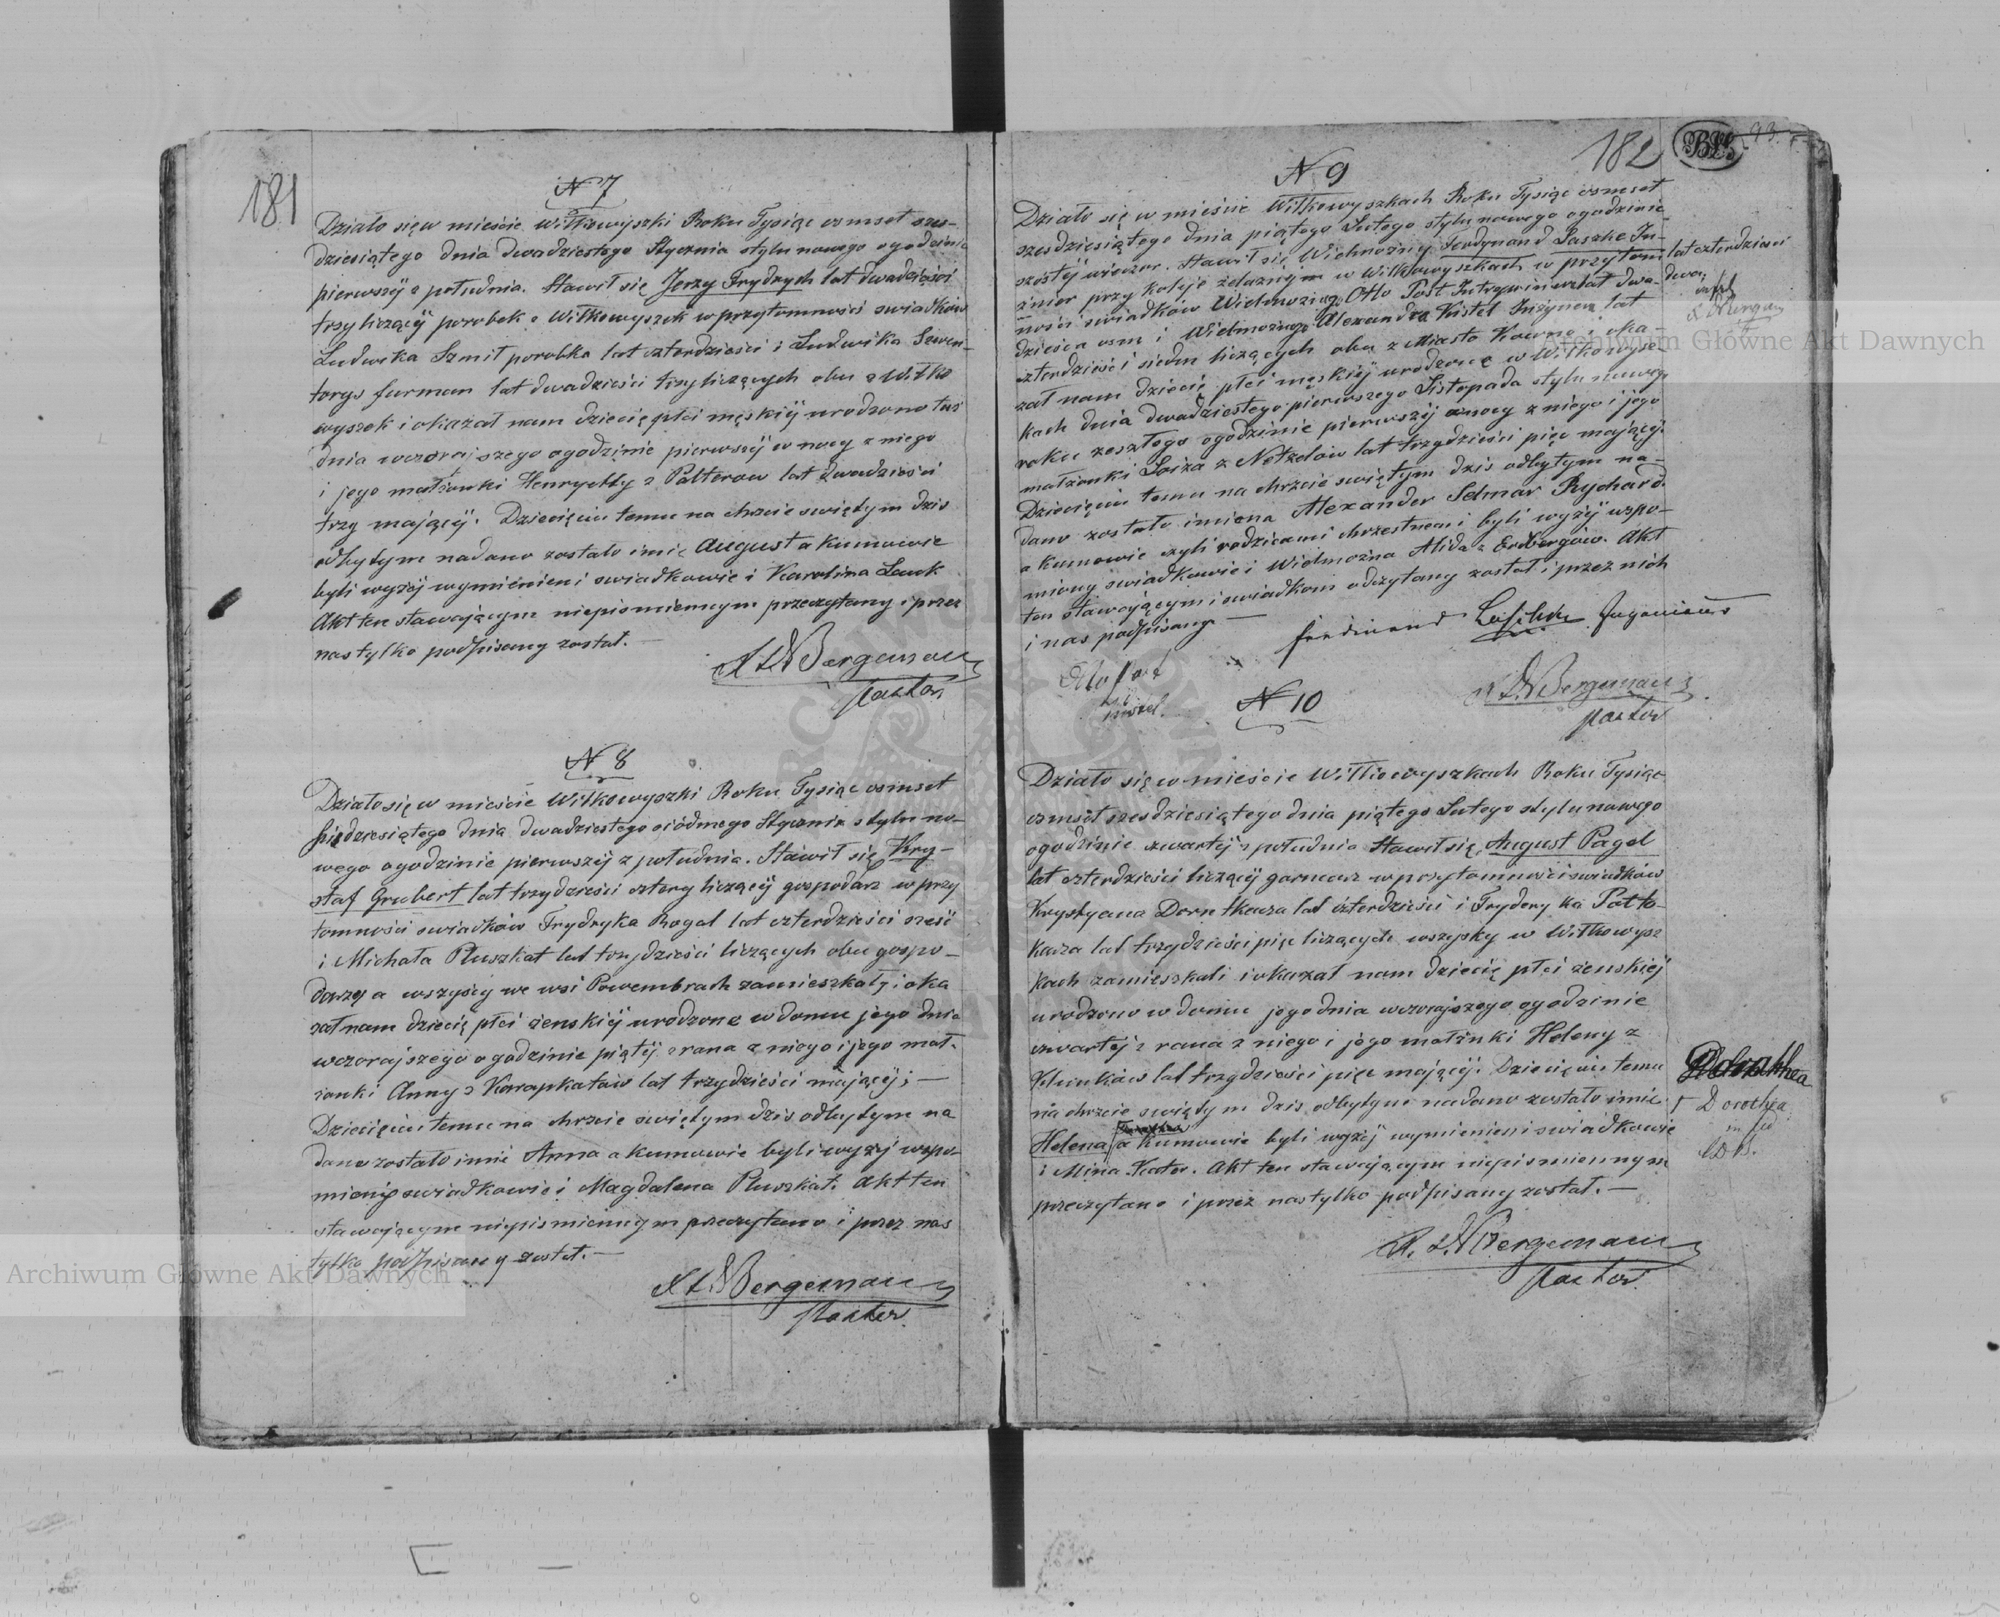 181
N 7
Działo się w mieście Wiłkowyszki Roku Tysiąc osmset szes-
dziesiątego dnia dwudziestego Stycznia stylu nowego ogodzinie
pierwszéj z południa. Stawił się Jerzy Frydrych lat dwadzieści
trzy liczący porobek z Wiłkowyszek w przytomności swiadków
Ludwika Szmit porobka lat czterdzieści i Ludwika Szwen-
torys furman lat dwadzieści trzy liczących obu z Wiłko
wyszek i okazał nam dziecię płci męskiéj urodzono tu
dnia wczorajszego ogodzinie pierwszéj w nocy z niego
i jego małżonki Henryetty z Palterow lat dwadzieści
trzy mającéj. Dziecięciu temu na chrzcie swiętym dzis
odbytym nadano zostało imię August a kumowie
byli wyżéj wymienieni swiadkowie i Karolina Lauk
Akt ten stawającym niepismiennym przeczytany i przez
nas tylko podpisany został.
Bergemann
Pastor
N 8
Działo się w mieście Wiłkowyszki Roku Tysiąc osmset
dziesiątego dnia dwudziestego siódmego Stycznia stylu no-
wego ogodzinie pierwszéj z południa. Stawił się Kry-
staf Grubert lat trzydzieści cztery liczący gospodarz w przy
tomności swiadków Frydryka Rogal lat czterdzieści sześć
i Michała Pluszkat lat trzydzieści liczących obu gospo-
darzy a wszyscy we wsi Powembrach zamieszkały i oka
zał nam dziecię płci żenskiéj urodzone w domu jego dnia
wczorajszego ogodzinie piątéj z rana z niego i jego mał-
żonki Anny z Karapkatow lat trzydzieści mającéj;
Dziecięciu temu na chrzcie swiętym dzis odbytym na
dano zostało imie Anna a kumowie byli wyżéj wspo-
mieni swiadkowie i Magdalena Pluszkat. Akt ten
stawającym niepismiennym przeczytano i przez nas
tylko podpisany został.
Bergemann
Pastor.
182
N 9
Działo się w mieście Wiłkowyszkach Roku Tysiąc osmset
szesdziesiątego dnia piątego Lutego stylu nowego ogodzinie
szóstéj wieczor. Stawił się Wielmożny Ferdynand Laszke In-
żinier przy koleje żelaznéjm w Wiłkowyszkach w przytom-
ności swiadków Wielmożnego Otto Post lat dwa-
dzieścia osm i Wielmożnego Alexandra Kistel Inżynera lat
czterdzieści siedm liczących obu z Miasta Kowno i oka-
zał nam dziecię płci męskiéj urodzone w Wiłkowysz-
kach dnia dwudziestego pierwszego Listopada stylu nowego
roku zeszłego ogodzinie pierwszéj znocy z niego i jego
małżonki Loiza z Netzelów lat trzydzieści pięć mającéj.
Dziecięciu temu na chrzcie swiętym dzis odbytym na-
dano zostało imiona Alexander Selmar Rychard.
a kumowie czyli rodzicami chrzestnemi byli wyżéj wspo-
miony swiadkowie i Wielmożna Alida z Erdbergów. Akt
ten stawającym i swiadkom odczytany został i przez nich
i nas podpisany
Ferdinand Laschke Ingenieur
Bergemann
Pastor
lat czterdzieści
dwa,
N 10
Działo się w mieście Wiłkowyszkach Roku Tysiąc
osmset szesdziesiątego dnia piątego Lutego stylu nowego
ogodzinie czwartéj z południa Stawił się August Pagel
lat czterdzieści liczący garncarz w przytomności swiadków
Krystyana Dorn tkacza lat czterdzieści i Fryderyka
lat trzydzieści pięć liczących wszyscy w Wiłkowysz
kach zamieszkali i okazał nam dziecię płci żenskiéj
urodzono w domu jego dnia wczorajszego ogodzinie
czwartéj z rana z niego i jego małżonki Heleny z
lat trzydzieści pięć mającéj. Dziecięciu temu
na chrzcie swiętym dzis odbytym nadano zostało imie
Helena a kumowie byli wyżéj wymienieni swiadkowie
i Mina. Akt ten stawającym niepismiennym
przeczytano i przez nas tylko podpisany został.
Bergemann
Pastor.
Dorothea
Archiwum Główne Akt Dawnych
Archiwum Główne Akt Dawnych